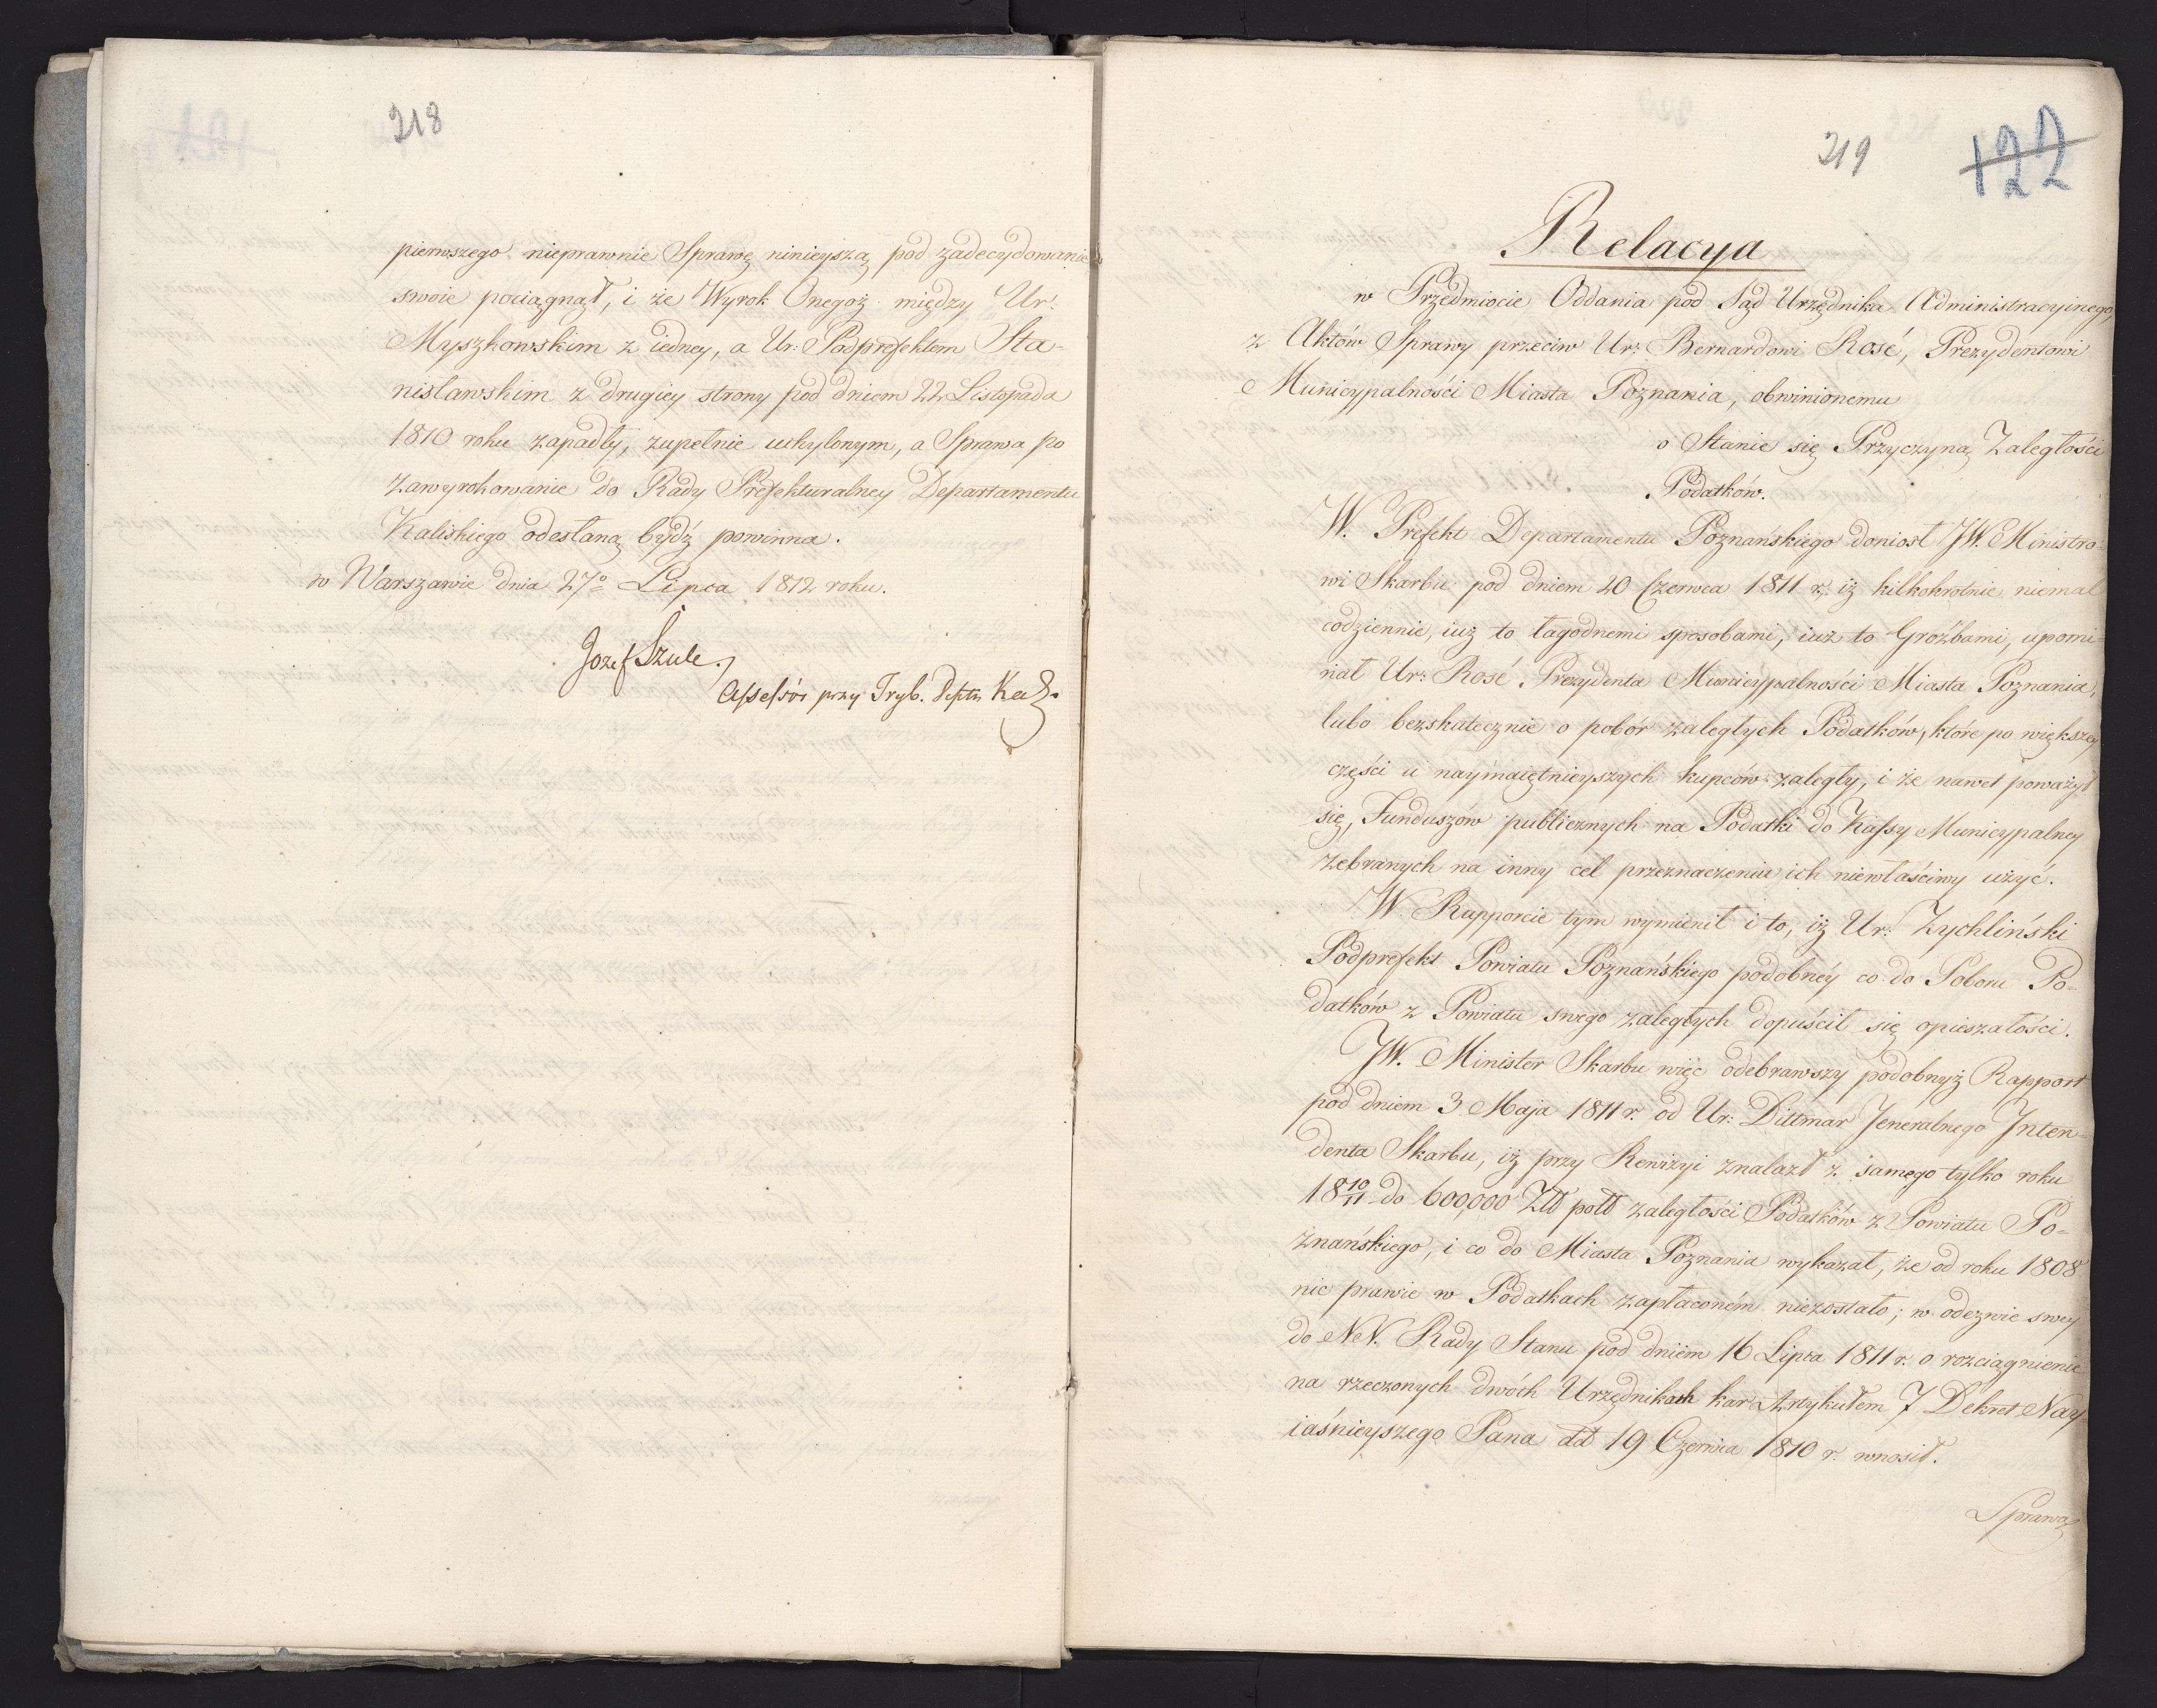 218
pierwszego nieprawnie Sprawę ninieyszą pod zadecydowanie
swoie pociągnął, i że Wyrok Onegoż między Ur:
Myszkowskim z iedney, a Ur: Podprefektem Sta-
nisławskim z drugiey strony pod dniem 22 Listopada
1810 roku zapadły, zupełnie uchylonym, a Sprawa po
zawyrokowanie do Rady Prefekturalney Departamentu
Kaliskiego odesłaną bydź powinna.
w Warszawie dnia 27º Lipca 1812 roku.
Jozef Szulc
Assessór przy Tryb.
219
122
Relacya
w Przedmiocie Oddania pod Sąd Urzędnika Administracyinego,
z Aktów Sprawy przeciw Ur: Bernardowi Rosé, Prezydentowi
Municypalności Miasta Poznania, obwinionemu
o Stanie się Przyczyną Zaległości
Podatków.
W. Prefekt Departamentu Poznańskiego doniosł JW. Ministro-
wi Skarbu pod dniem 20 Czerwca 1811 r. iż kilkokrotnie niemal
codziennie, iuż to łagodnemi sposobami, iuż to Groźbami, upomi-
nał Ur: Rosé Prezydenta Municypalności Miasta Poznania,
lubo bezskutecznie o pobór zaległych Podatków, które po większey
części u naymaiętnieyszych kupców zaległy, i że nawet poważył
się, Funduszów publicznych na Podatki do Kassy Municypalney
zebranych na inny cel przeznaczeniu ich niewłaściwy użyć.
W Rapporcie tym wymienił i to, iż Ur: Zychliński
Podprefekt Powiatu Poznańskiego podobnéy co do Poboru Po-
datków z Powiatu swego zaległych dopuścił się opieszałości.
JW. Minister Skarbu więc odebrawszy podobnyż Rapport
pod dniem 3 Maja 1811 r. od Ur: Dittmar Jeneralnego Inten-
denta Skarbu, iż przy Rewizyi znalazł z samego tylko roku
18 10/11 do 600,000 Złł poll zaległości Podatków z Powiatu Po-
znańskiego, i co do Miasta Poznania wykazał, że od roku 1808
nic prawie w Podatkach zapłaconém niezostało; w odezwie swey
do NN. Rady Stanu pod dniem 16 Lipca 1811 r. o rozciągnienie
na rzeczonych dwóch Urzędnikach kar Artykułem 7 Dekret. Nay-
iaśnieyszego Pana dd 19 Czerwca 1810 r. wnosił.
Sprawa